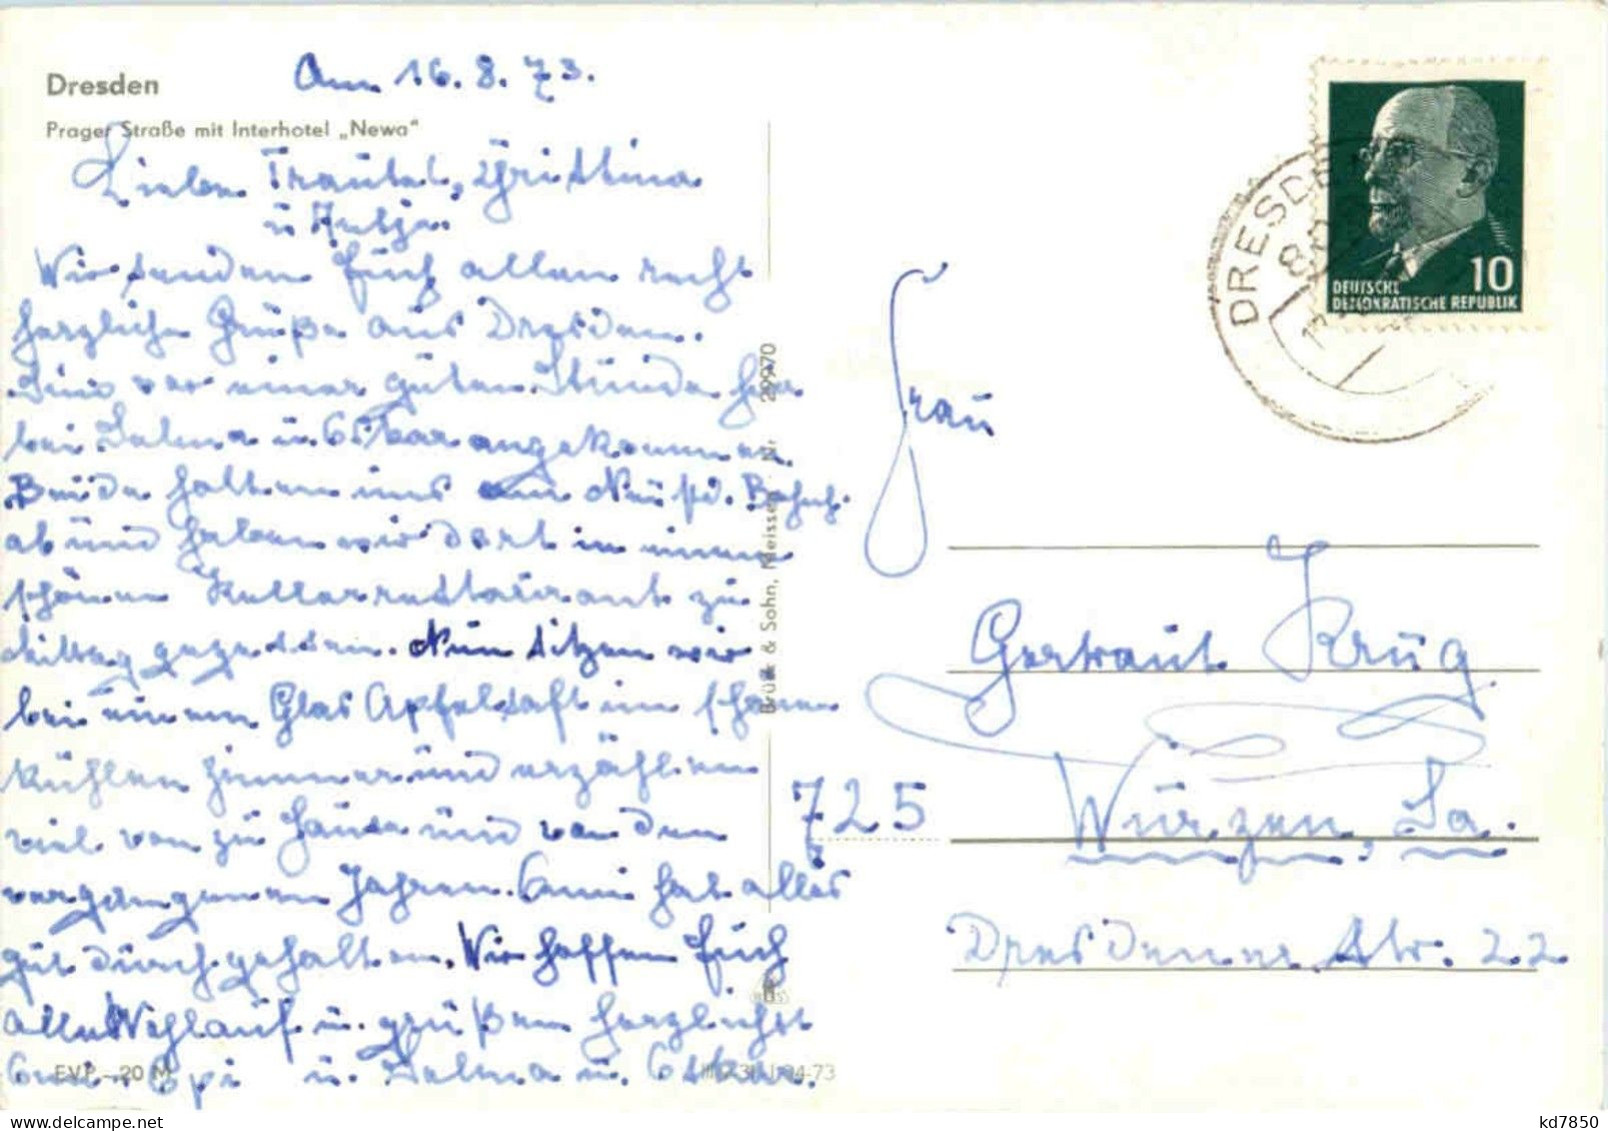 Dresden
Prager Straße mit Interhotel „Newa"
Am 16.8.73.
Liebe Trautel, Christina
u. Antje.
Wir senden Euch allen recht
herzliche Grüße aus Dresden.
Sind vor einer guten Stunde hier
bei Selma u. Oskar angekommen.
Beide holten uns am Neust. Bahnh.
ab und haben wir dort in einem
schönen Kellerrestaurant zu
Mittag gegessen. Nun sitzen wir
bei einem Glas Apfelsaft im schönen
kühlen Zimmer und erzählen
viel von zu Hause und von den
vergangenen Jahren. Omi hat alles
gut durchgehalten. Wir hoffen Euch
alle Wohlauf u. grüßen herzlichst
Omi Opi u. Selma u. Oskar.
EVP –20 M
Brück & Sohn, Meissen Nr. 29970
DRESDEN
DEUTSCHE
DEMOKRATISCHE REPUBLIK
10
Frau
Gertraut Krug
725 Wurzen, Sa.
Dresdener Str. 22
kd7850